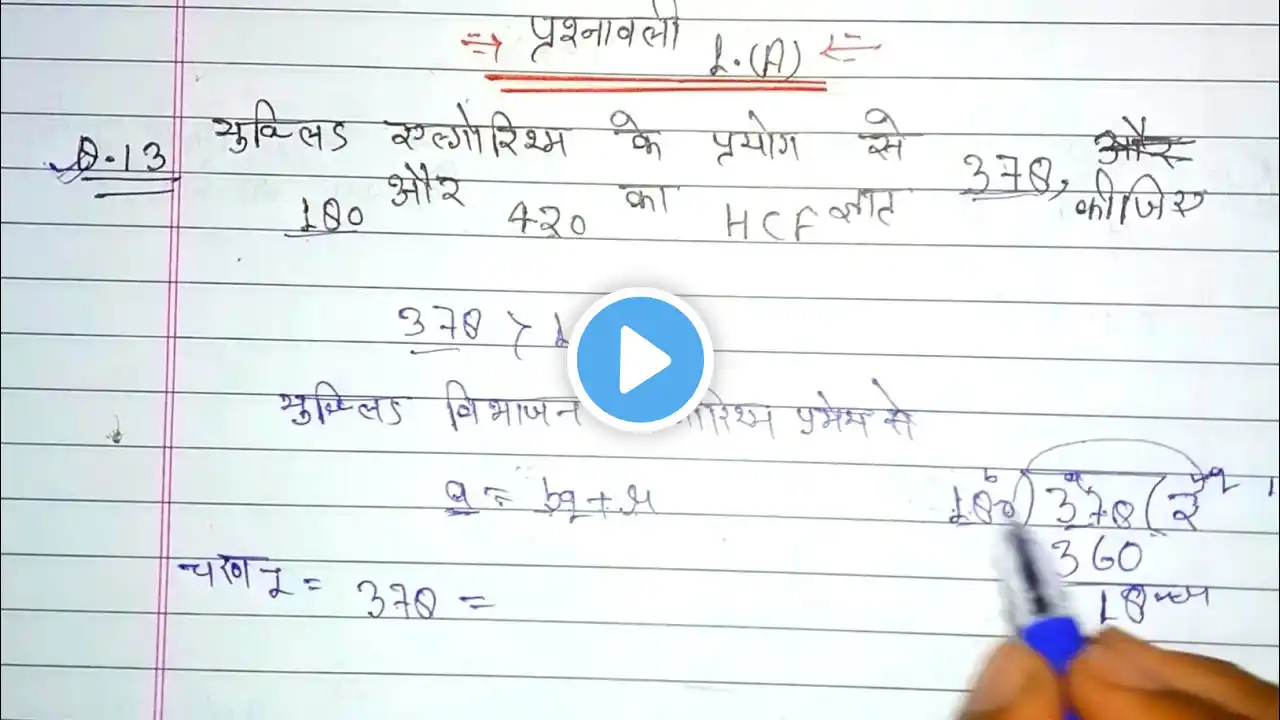 ⇒ प्रश्नावली 1.(A) ⇐
Q.13 युक्लिड एल्गोरिथ्म के प्रयोग से 378, और
180 और 420 का HCF ज्ञात कीजिए
378 > 1
युक्लिड विभाजन प्रमेय से
a = bq + r
b a q
180) 378 (2
360
18
चरण 1 = 378 =